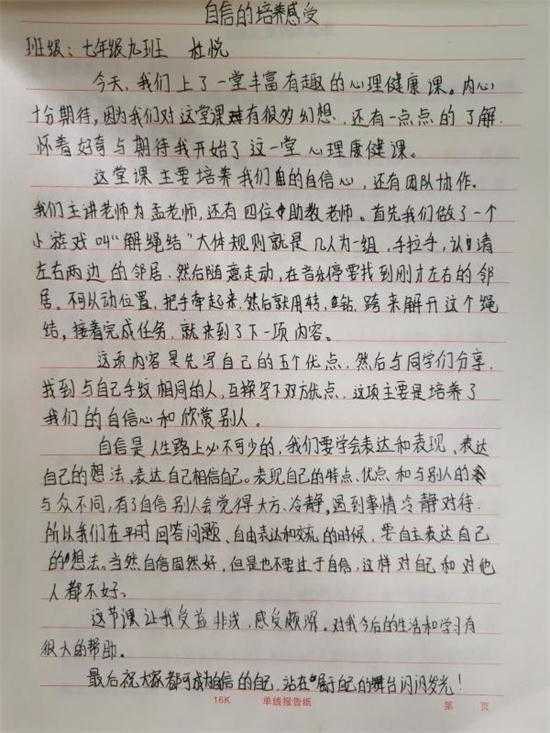 自信的培养感受
班级：七年级九班 杜悦
今天，我们上了一堂丰富有趣的心理健康课。内心
十分期待，因为我们对这堂课有很多幻想，还有一点点的了解。
怀着好奇与期待我开始了这一堂心理康健课。
这堂课主要培养我们的自信心，还有团队协作。
我们主讲老师为孟老师，还有四位助教老师。首先我们做了一个
小游戏叫“解绳结”大体规则就是几人为一组，手拉手，认清
左右两边的邻居，然后随意走动，在音乐停要找到刚才左右的邻
居。不可从动位置，把手牵起来，然后就用转，钻，跨来解开这个绳
结。接着完成任务，就来到了下一项内容。
这项内容是先写自己的五个优点，然后与同学们分享，
找到与自己手纹相同的人，互换写下双方优点，这项主要是培养了
我们的自信心和欣赏别人。
自信是人生路上必不可少的，我们要学会表达和表现、表达
自己的想法、表达自己相信自己。表现自己的特点、优点、和与别人的
与众不同，有了自信别人会觉得大方、冷静，遇到事情冷静对待。
所以我们在平时回答问题、自由表达和交流的时候，要自主表达自己
的想法。当然，自信固然好，但是也不要过于自信，这样对自己和对他
人都不好。
这节课让我受益非浅，感受颇深。对我今后的生活和学习有
很大的帮助。
最后祝大家都可成自信的自己，站在属于自己的舞台闪闪发光！
16K 单线报告纸 第 页